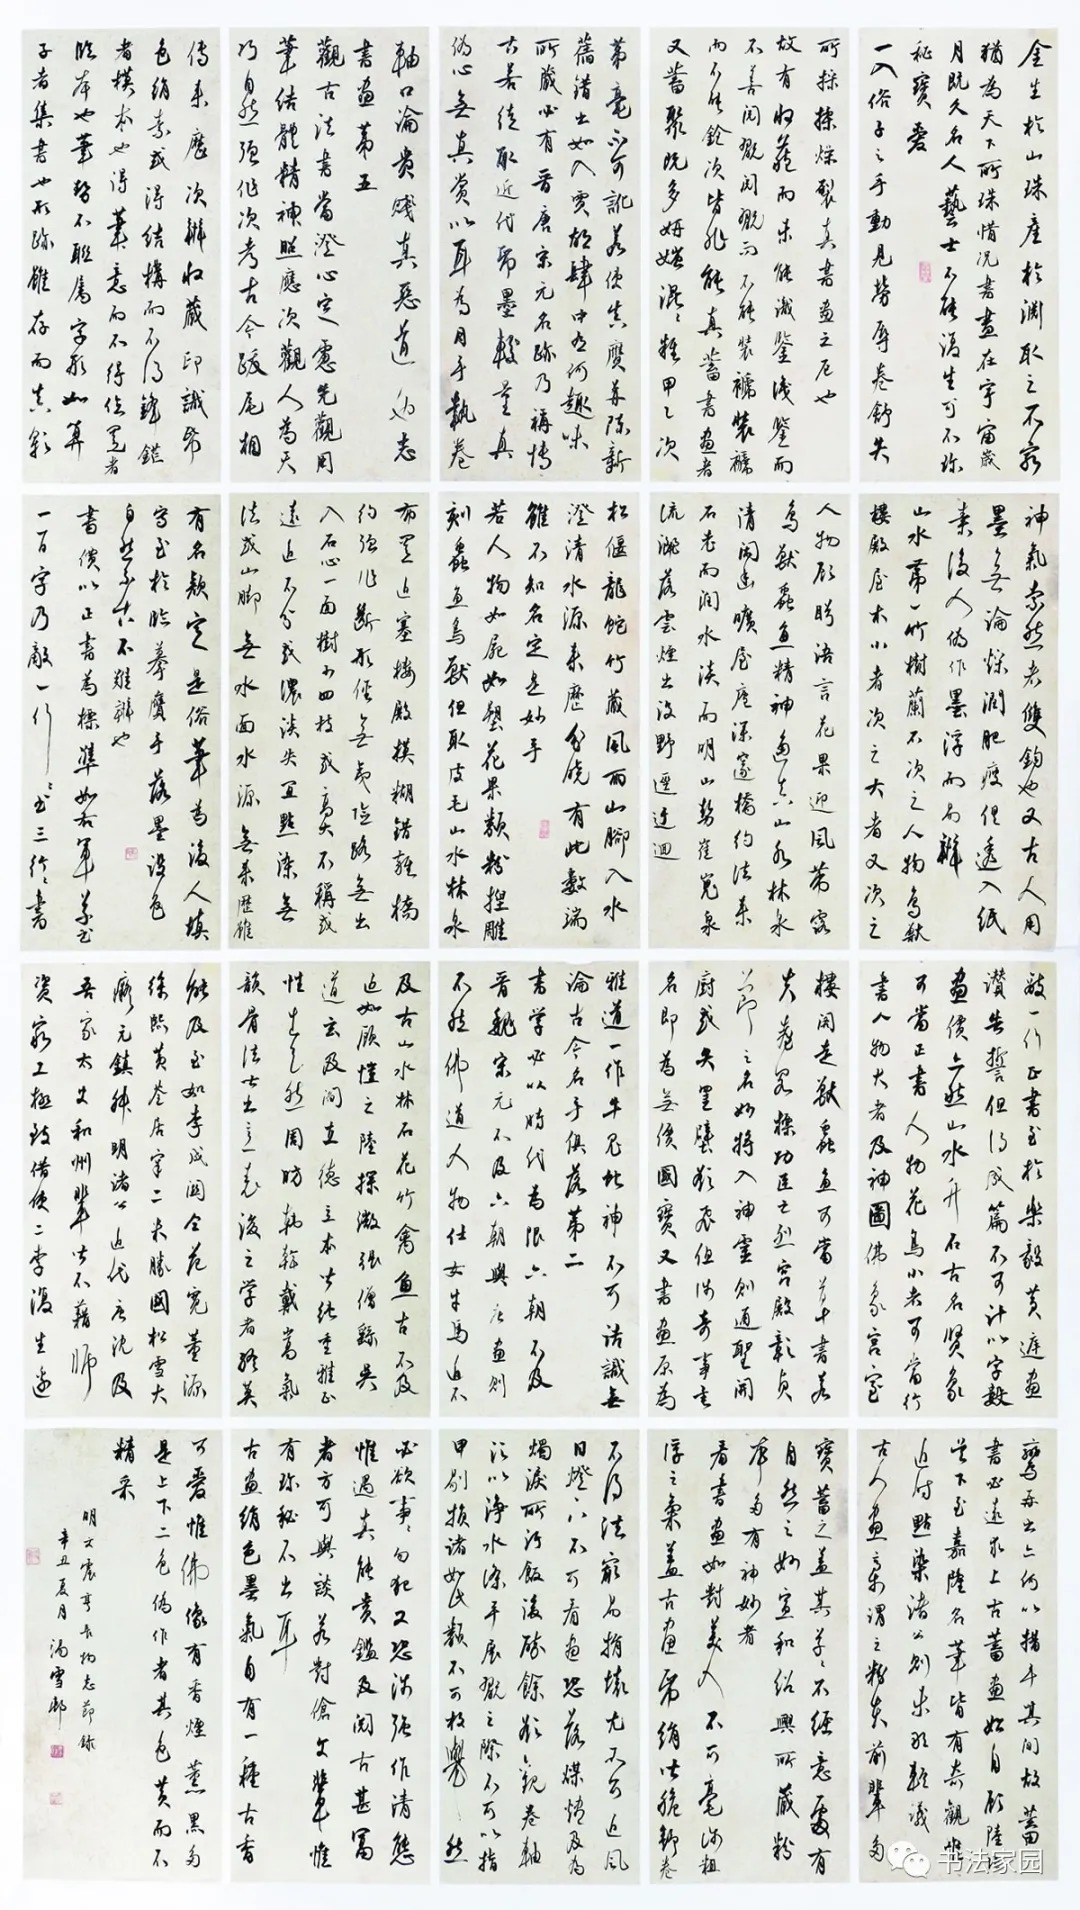 金生於山珠產於淵取之不窮
猶為天下所珠惜況書畫在宇宙歲
月既久名人藝士不能復生可不珍
秘寶愛
一入俗子之手動見勞辱卷舒失
所操揉燥裂真書畫之厄也
故有收藏而未能識鑒識鑒而
不善閱翫閱翫而不能裝褫裝褫
而不能銓次皆非能真蓄書畫者
又蓄聚既多妍媸混雜甲乙次
第毫不可訛若使真贗並陳新
舊錯出如入賈胡肆中有何趣味
所藏必有晉唐宋元名跡乃稱博
古若徒取近代紙墨較量真
偽心無真賞以耳為目手執卷
軸口論貴賤真惡道也志
書畫第五
觀古法書當澄心定慮先觀用
筆結體精神照應次觀人為天
巧自然強作次考古今跋尾相
傳來歷次辨收藏印識紙
色絹素或得結構而不得鋒鋩
者模本也得筆意而不得位置者
臨本也筆勢不聯屬字形如算
子者集書也形跡雖存而真彩
神氣索然者雙鉤也又古人用
墨無論燥潤肥瘦俱透入紙
素後人偽作墨浮而易辨
山水第一竹樹蘭石次之人物鳥獸
樓殿屋木小者次之大者又次之
人物顧盼語言花果迎風帶露
鳥獸蟲魚精神逼真山水林泉
清閒幽曠屋廬深邃橋彴往來
石老而潤水淡而明山勢崔嵬泉
流灑落雲煙出沒野逕迂迴
松偃龍蛇竹藏風雨山腳入水
澄清水源來歷分曉有此數端
雖不知名定是妙手
若人物如尸如塑花果類粉捏雕
刻蟲魚鳥獸但取皮毛山水林泉
布置迫塞樓殿模糊錯雜橋
彴強作斷形徑無夷險路無出
入石止一面樹少四枝或高大不稱或
遠近不分或濃淡失宜點染無
法或山腳無水面水源無來歷雖
有名款定是俗筆為後人填
寫至於臨摹贗手落墨設色
自然不古不難辨也
書價以正書為標準如右軍草書
一百字乃敵一行行書三行行書
敵一行正書至於樂毅黃庭畫
讚告誓但得成篇不可計以字數
畫價亦然山水竹石古名賢象
可當正書人物花鳥小者可當行
書人物大者及神圖佛象宮室
樓閣走獸蟲魚可當草書若
夫臺閣標功臣之烈宮殿彰貞
節之名妙將入神靈則通聖開
廚或失挂壁欲飛但涉奇事異
名即為無價國寶又書畫原為
雅道一作牛鬼蛇神不可詰識無
論古今名手俱落第二
書學必以時代為限六朝不及
晉魏宋元不及六朝與唐畫則
不然佛道人物仕女牛馬近不
及古山水林石花竹禽魚古不及
近如顧愷之陸探微張僧繇吳
道玄及閻立德立本皆純重雅正
性出天然周昉韓幹戴嵩氣
韻骨法皆出意表後之學者終莫
能及至如李成關仝范寬董源
徐熙黃荃居寀二米勝國松雪大
癡元鎮叔明諸公近代唐沈及
吾家太史和州輩皆不藉師
資窮工極致借使二李復生邊
鸞再出亦何以措手其間故蓄
書必遠求上古蓄畫始自顧陸張
吳下至嘉隆名筆皆有奇觀惟
近時點染諸公則未敢輕議
古人畫稾謂之粉本前輩多
寶蓄之蓋其草草不經意處有
自然之妙宣和紹興所藏粉
本多有神妙者
看書畫如對美人不可毫涉粗
浮之氣蓋古畫紙絹皆脆舒卷
不得法最易損壞尤不可近風
日燈下不可看畫恐落煤燼及為
燭淚所汙飯後醉餘欲觀卷軸
須以淨水滌手展翫之際不可以指
甲剔損諸如此類不可枚舉然
必欲事事勿犯又恐涉強作清態
惟遇真能賞鑑及閱古甚富
者方可與談若對傖父輩惟
有珍秘不出耳
古畫絹色墨氣自有一種古香
可愛惟佛像有香煙薰黑多
是上下二色偽作者其色黃而不
精采
明文震亨長物志節錄
辛丑夏月 湯雪邨
书法家园